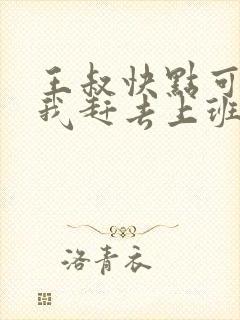 王叔快點可
我赶去上班
洛青衣